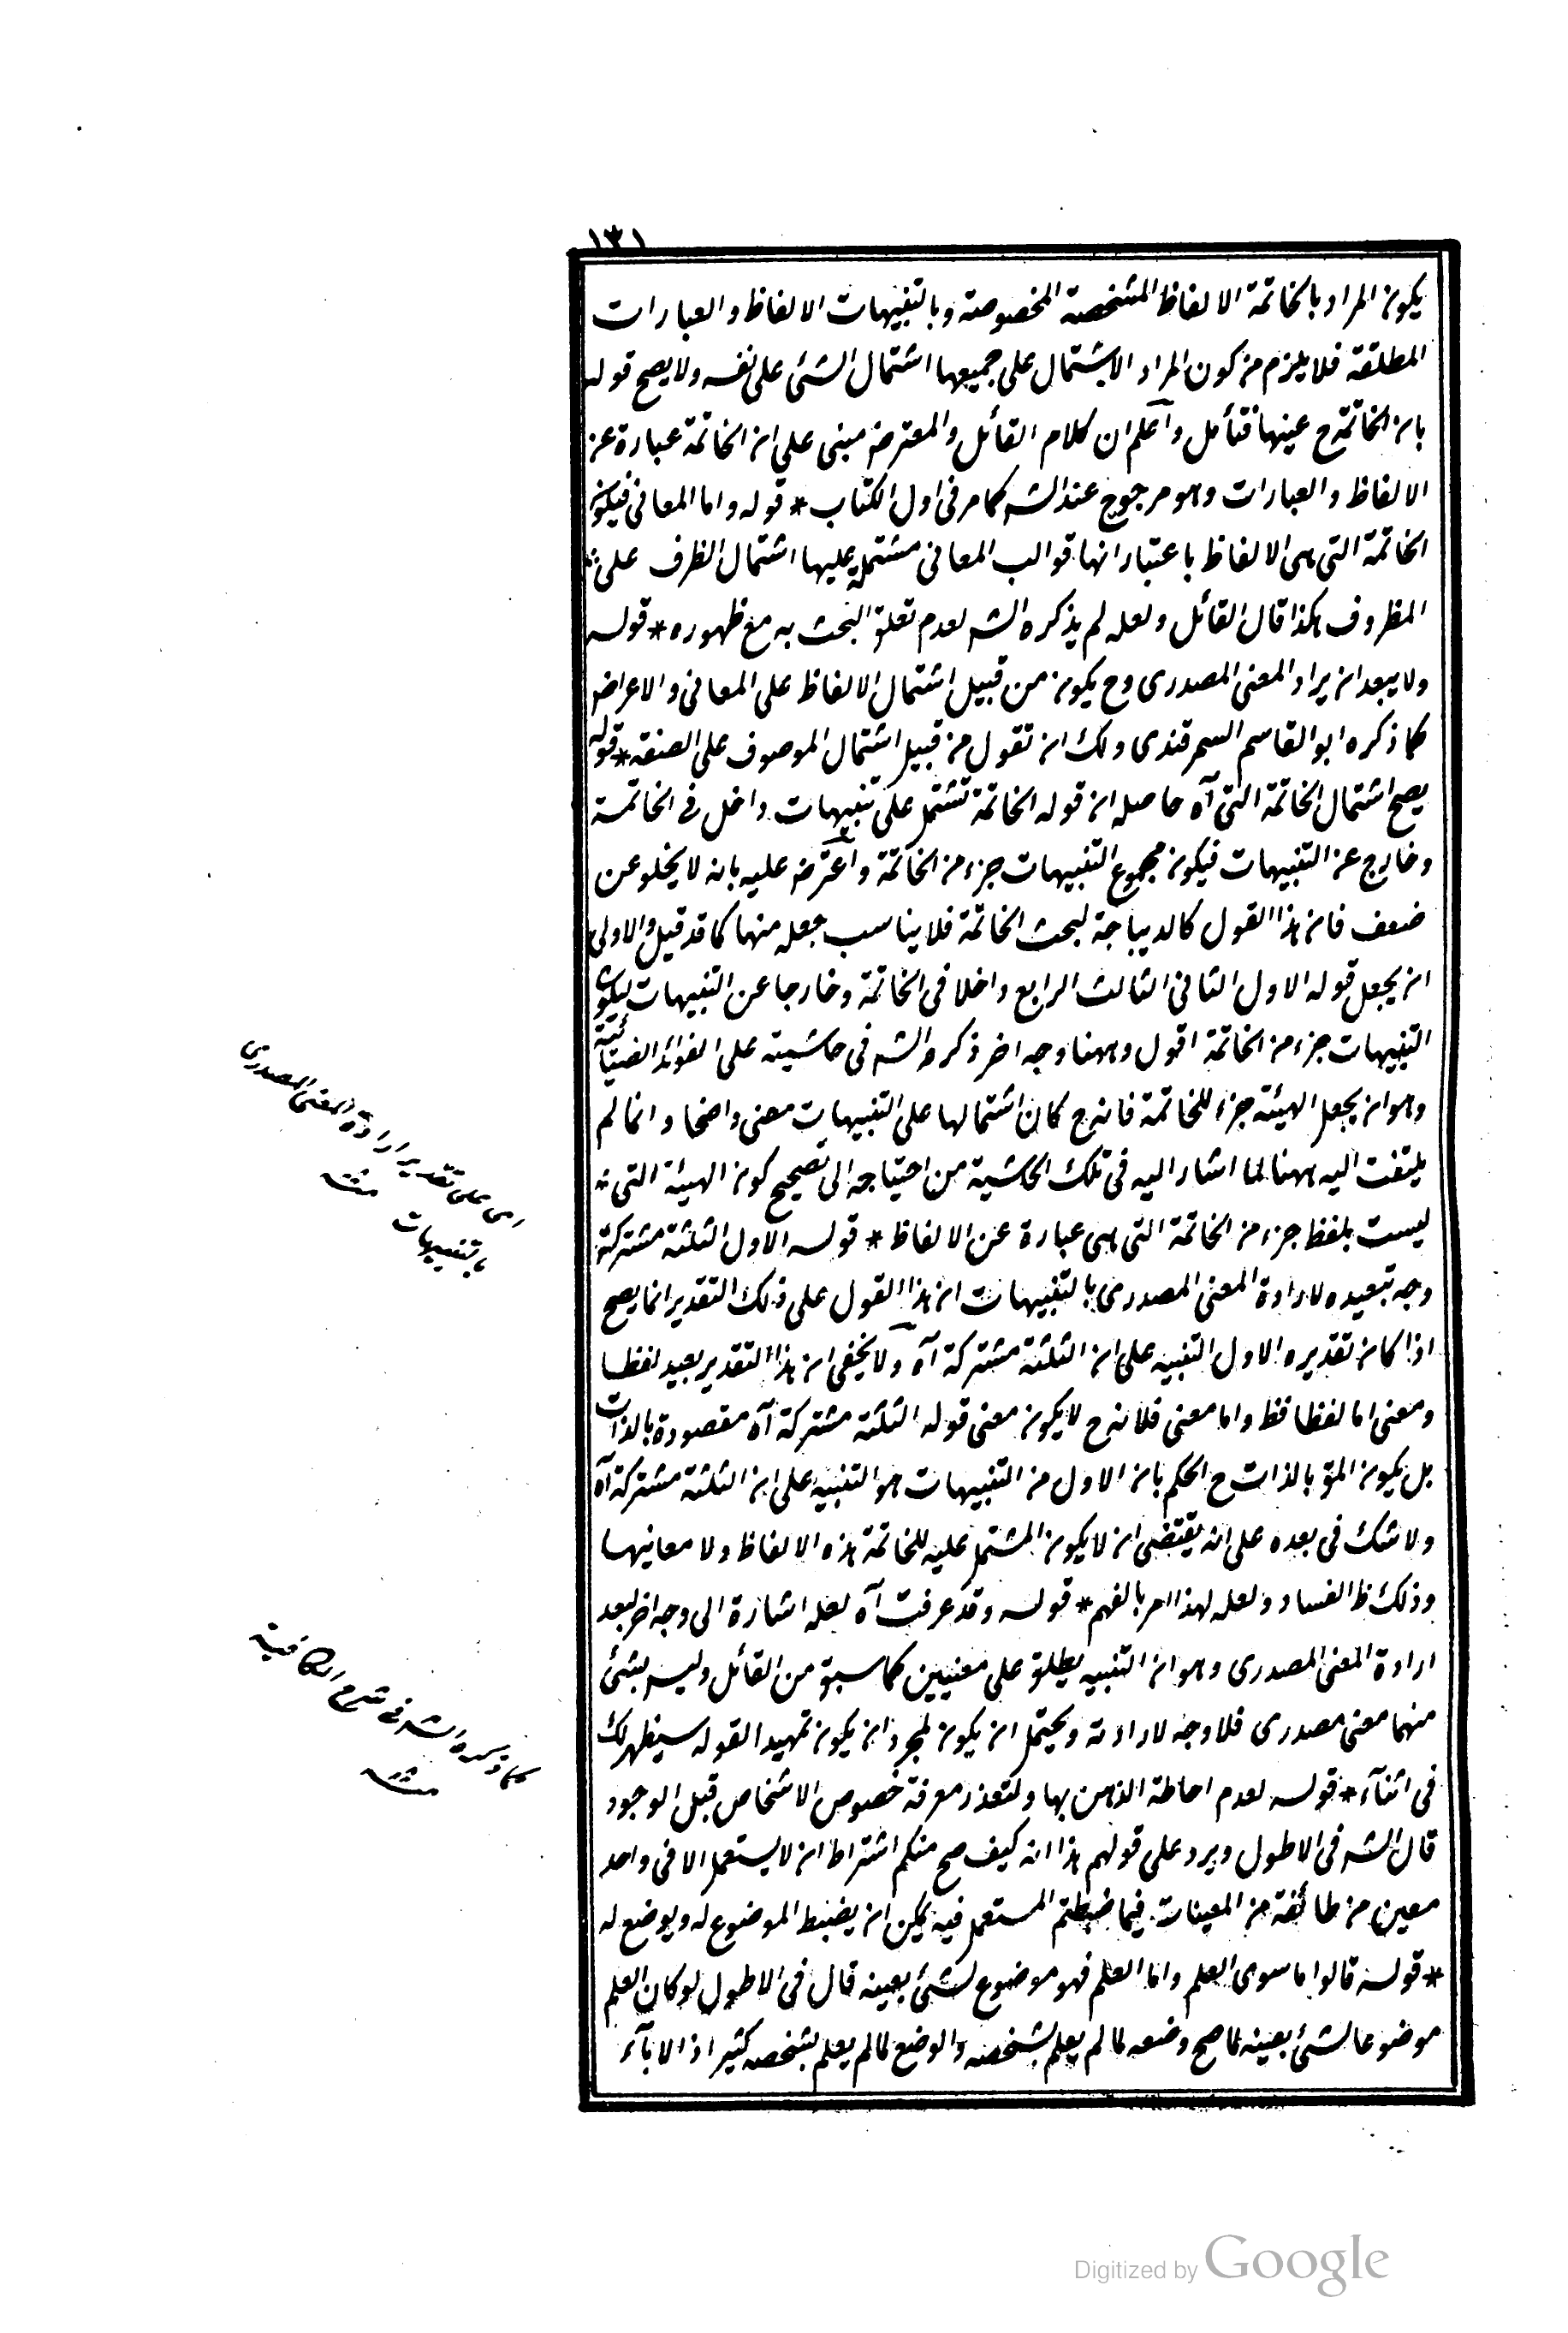 ١٣١
يكون المراد بالخاتمة الالفاظ المشخصة المخصوصة وبالتنبيهات الالفاظ والعبارات
المطلقة فلا يلزم من كون المراد الاشتمال على جميعها اشتمال الشئ على نفسه ولا يصح قوله
بان الخاتمة ح عينها فتأمل واعلم ان كلام القائل والمعترض مبنى على ان الخاتمة عبارة عن
الالفاظ والعبارات وهو مرجوح عند الشه كما مر فى اول الكتاب * قوله واما المعانى فيكون
الخاتمة التى هى الالفاظ باعتبار انها قوالب المعانى مشتملة عليها اشتمال الظرف على
المظروف هكذا قال القائل ولعله لم يذكره الشه لعدم تعلق البحث به مع ظهوره * قوله
ولا يبعد ان يراد المعنى المصدرى وح يكون من قبيل اشتمال الالفاظ على المعانى والاعراض
كما ذكره ابو القاسم السمرقندى ولك ان تقول من قبيل اشتمال الموصوف على الصفة * قوله
يصح اشتمال الخاتمة التى آه حاصله ان قوله الخاتمة تشتمل على تنبيهات داخل فى الخاتمة
وخارج عن التنبيهات فيكون مجموع التنبيهات جزء من الخاتمة واعترض عليه بانه لا يخلو عن
ضعف فان هذا القول كالديباجة لبحث الخاتمة فلا يناسب جعله منها كما قد قيل والاولى
ان يجعل قوله الاول الثانى الثالث الرابع داخلا فى الخاتمة وخارجا عن التنبيهات ليكون
التنبيهات جزء من الخاتمة اقول وههنا وجه اخر ذكره الشه فى حاشيته على الفوائد الضيائية
وهو ان يجعل الهيئة جزء للخاتمة فانه ح كان اشتمالها على التنبيهات معنى واضحا وانما لم
يلتفت اليه ههنا لما اشار اليه فى تلك الحاشية من احتياجه الى تصحيح كون الهيئة التى
ليست بلفظ جزء من الخاتمة التى هى عبارة عن الالفاظ * قوله الاول الثلثة مشتركة
وجه تبعيده لارادة المعنى المصدرى بالتنبيهات ان هذا القول على ذلك التقدير انما يصح
اذا كان تقديره الاول التنبيه على ان الثلثة مشتركة آه ولا يخفى ان هذا التقدير بعيد لفظا
ومعنى اما لفظا فظ واما معنى فلانه ح لا يكون معنى قوله الثلثة مشتركة آه مقصودة بالذات
بل يكون المق بالذات ح الحكم بان الاول من التنبيهات هو التنبيه على ان الثلثة مشتركة آه
ولا شك فى بعده على انه يقتضى ان لا يكون المشتمل عليه للخاتمة هذه الالفاظ ولا معانيها
وذلك ظ الفساد ولعله لهذا امر بالفهم * قوله وقد عرفت آه لعله اشارة الى وجه اخر لبعد
ارادة المعنى المصدرى وهو ان التنبيه يطلق على معنيين كما سبق من القائل وليس بشئ
منهما معنى مصدرى فلا وجه لارادته ويحتمل ان يكون لمجرد ان يكون تمهيدا لقوله سيظهر لك
فى اثناء * قوله لعدم احاطة الذهن بها ولتعذر معرفة خصوص الاشخاص قبل الوجود
قال الشه فى الاطول ويرد على قولهم هذا انه كيف صح منكم اشتراط ان لا يستعمل الا فى واحد
معين من طائفة من المعينات فيما ضبطتم المستعمل فيه يمكن ان يضبط الموضوع له ويوضع له
* قوله قالوا ما سوى العلم واما العلم فهو موضوع لشئ بعينه قال فى الاطول لو كان العلم
موضوعا لشئ بعينه لما صح وضعه لما لم يعلم بشخصه والوضع لما لم يعلم بشخصه كثير اذ الاباء
اى على تقدير ارادة المعنى المصدرى
بالتنبيهات منه
كما ذكره الشه فى شرح الكافية
منه
Digitized by Google